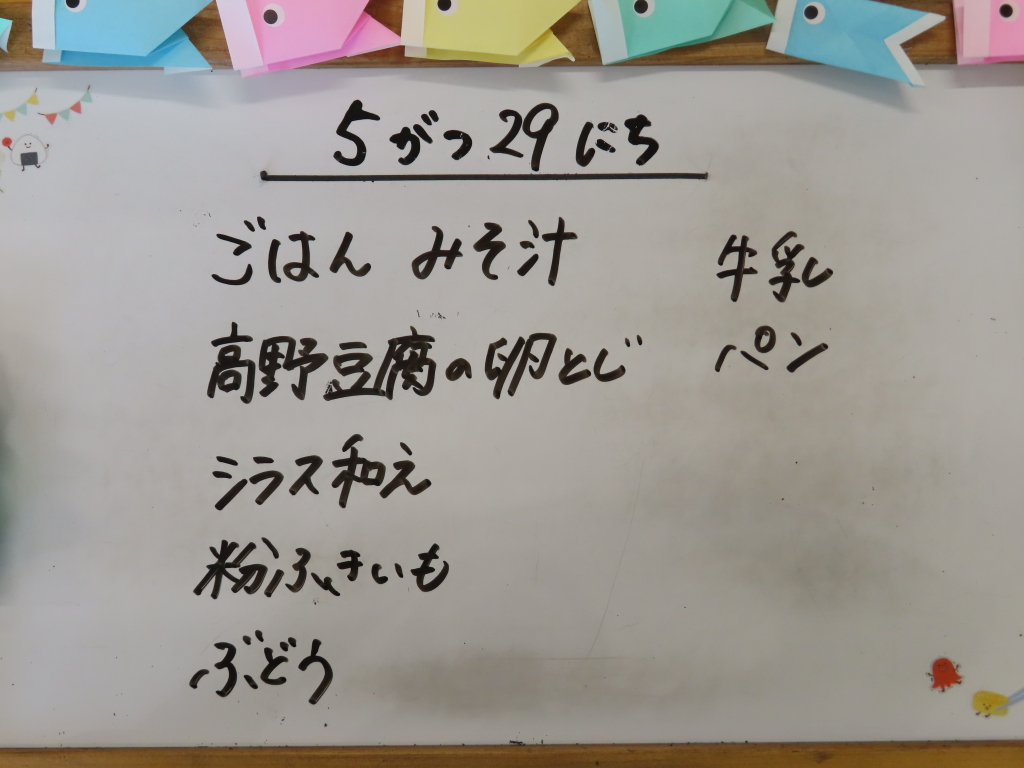 5がつ29にち
ごはん みそ汁
高野豆腐の卵とじ
シラス和え
粉ふきいも
ぶどう
牛乳
パン